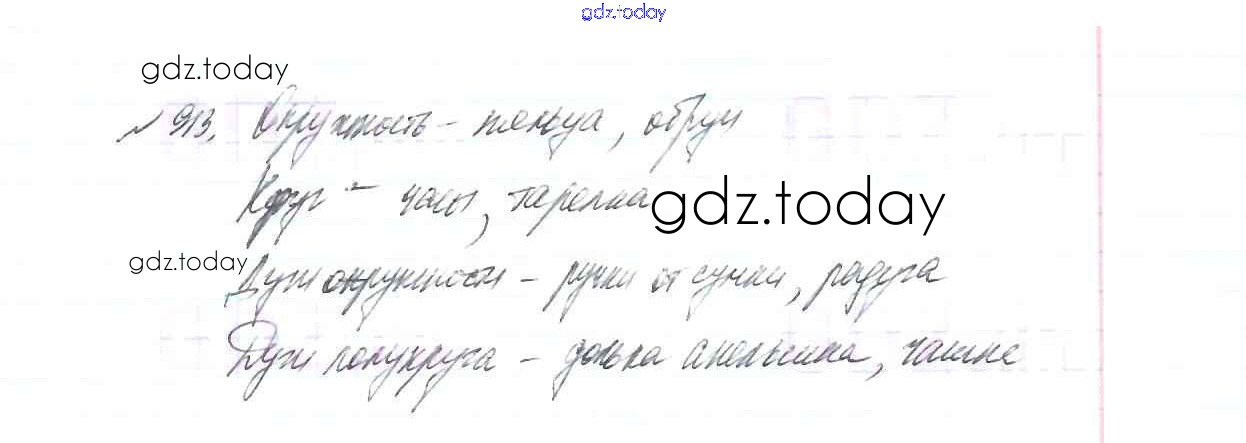 gdz.today
gdz.today
№ 913. Окружность – пяльца, обруч
Круг – часы, тарелка gdz.today
gdz.today
Дуги окружности – ручки от сумки, радуга
Дуги полукруга – долька апельсина,